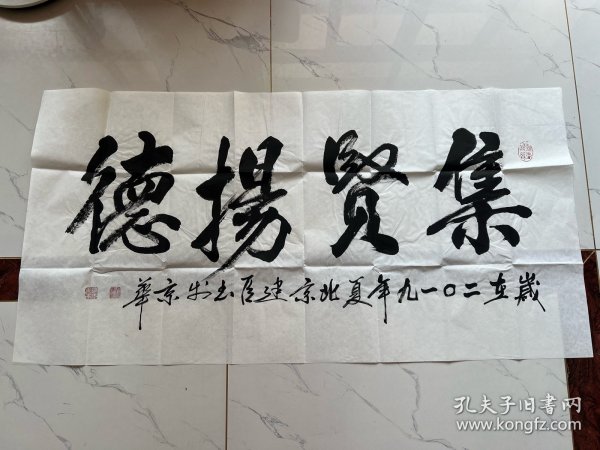 集賢揚德
歲在二〇一九年夏北京建臣書於京華
孔夫子旧书网
www.kongfz.com